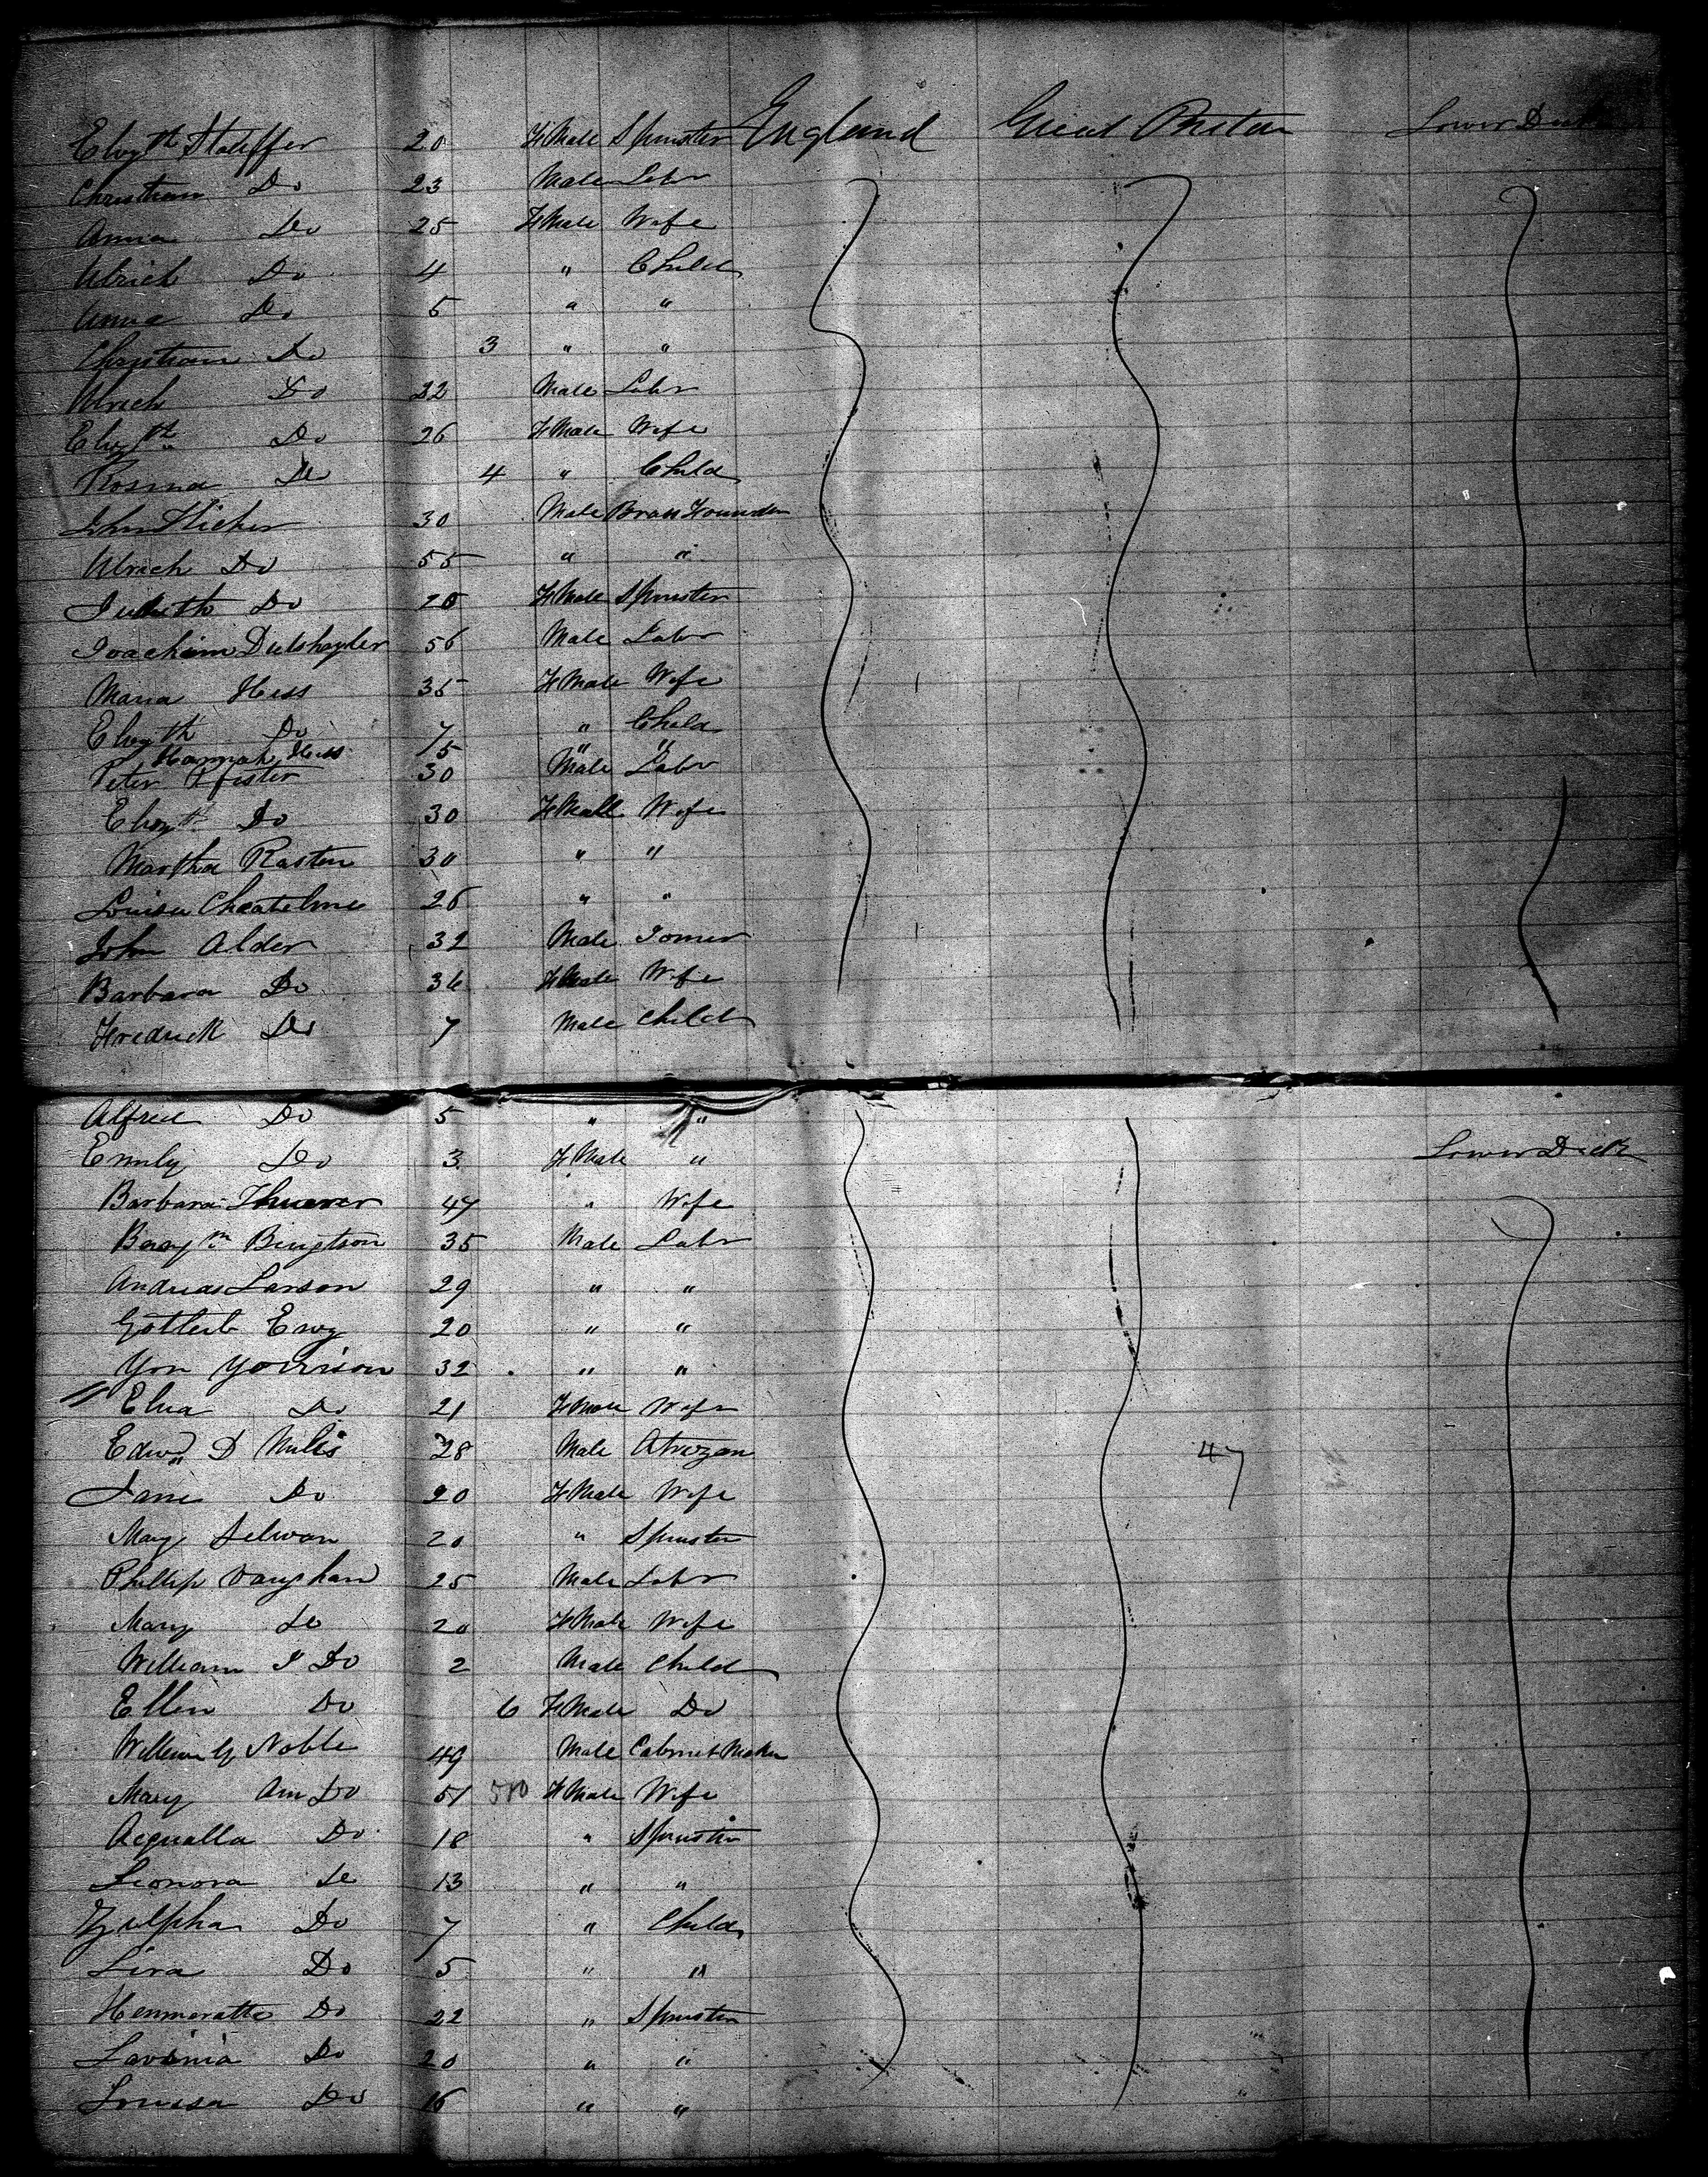 Elizth Stauffer 20 FMale Spinster England Great Briton Lower Deck
Christian Do 23 Male Labr
Anna Do 25 FMale Wife
Ulrich Do 4 " Child
Anna Do 5 " "
Christian Do 3 " "
Ulrich Do 22 Male Labr
Elizth Do 26 FMale Wife
Rosina Do 4 " Child
John 30 Male Brass Founder
Ulrich Do 55 " "
Judith Do FMale Spinster
Joachim 56 Male Labr
Maria Hess 35 FMale Wife
Elizth Do 7 " Child
Hannah Hess 5 " "
Peter Pfister 30 Male Labr
Elizth Do 30 FMale Wife
Martha Rasten 30 " "
Louisa 26 " "
John Alder 32 Male Joiner
Barbara Do 36 FMale Wife
Fredrick Do 7 Male Child
Alfred Do 5 " "
Emily Do 3 FMale " Lower Deck
Barbara 47 " Wife
Benjm Bingtson 35 Male Labr
Andrias Larson 29 " "
Gottleib 20 " "
Yon Yorrison 32 " "
Do 21 FMale Wife
Edwd D 28 Male 47
Jane Do 20 FMale Wife
Mary Selwan 20 " Spinster
Phillip Vaughan 25 Male Labr
Mary Do 20 FMale Wife
William J Do 2 Male Child
Ellen Do 6 FMale Do
William G Noble 49 Male Cabinet Maker
Mary Ann Do 51 500 FMale Wife
Acqualla Do 18 " Spinster
Leonora Do 13 " "
Zilpha Do 7 " Child
Do 5 " "
Henmeratta Do 22 " Spinster
Lavinia Do 20 " "
Louisa Do 16 " "